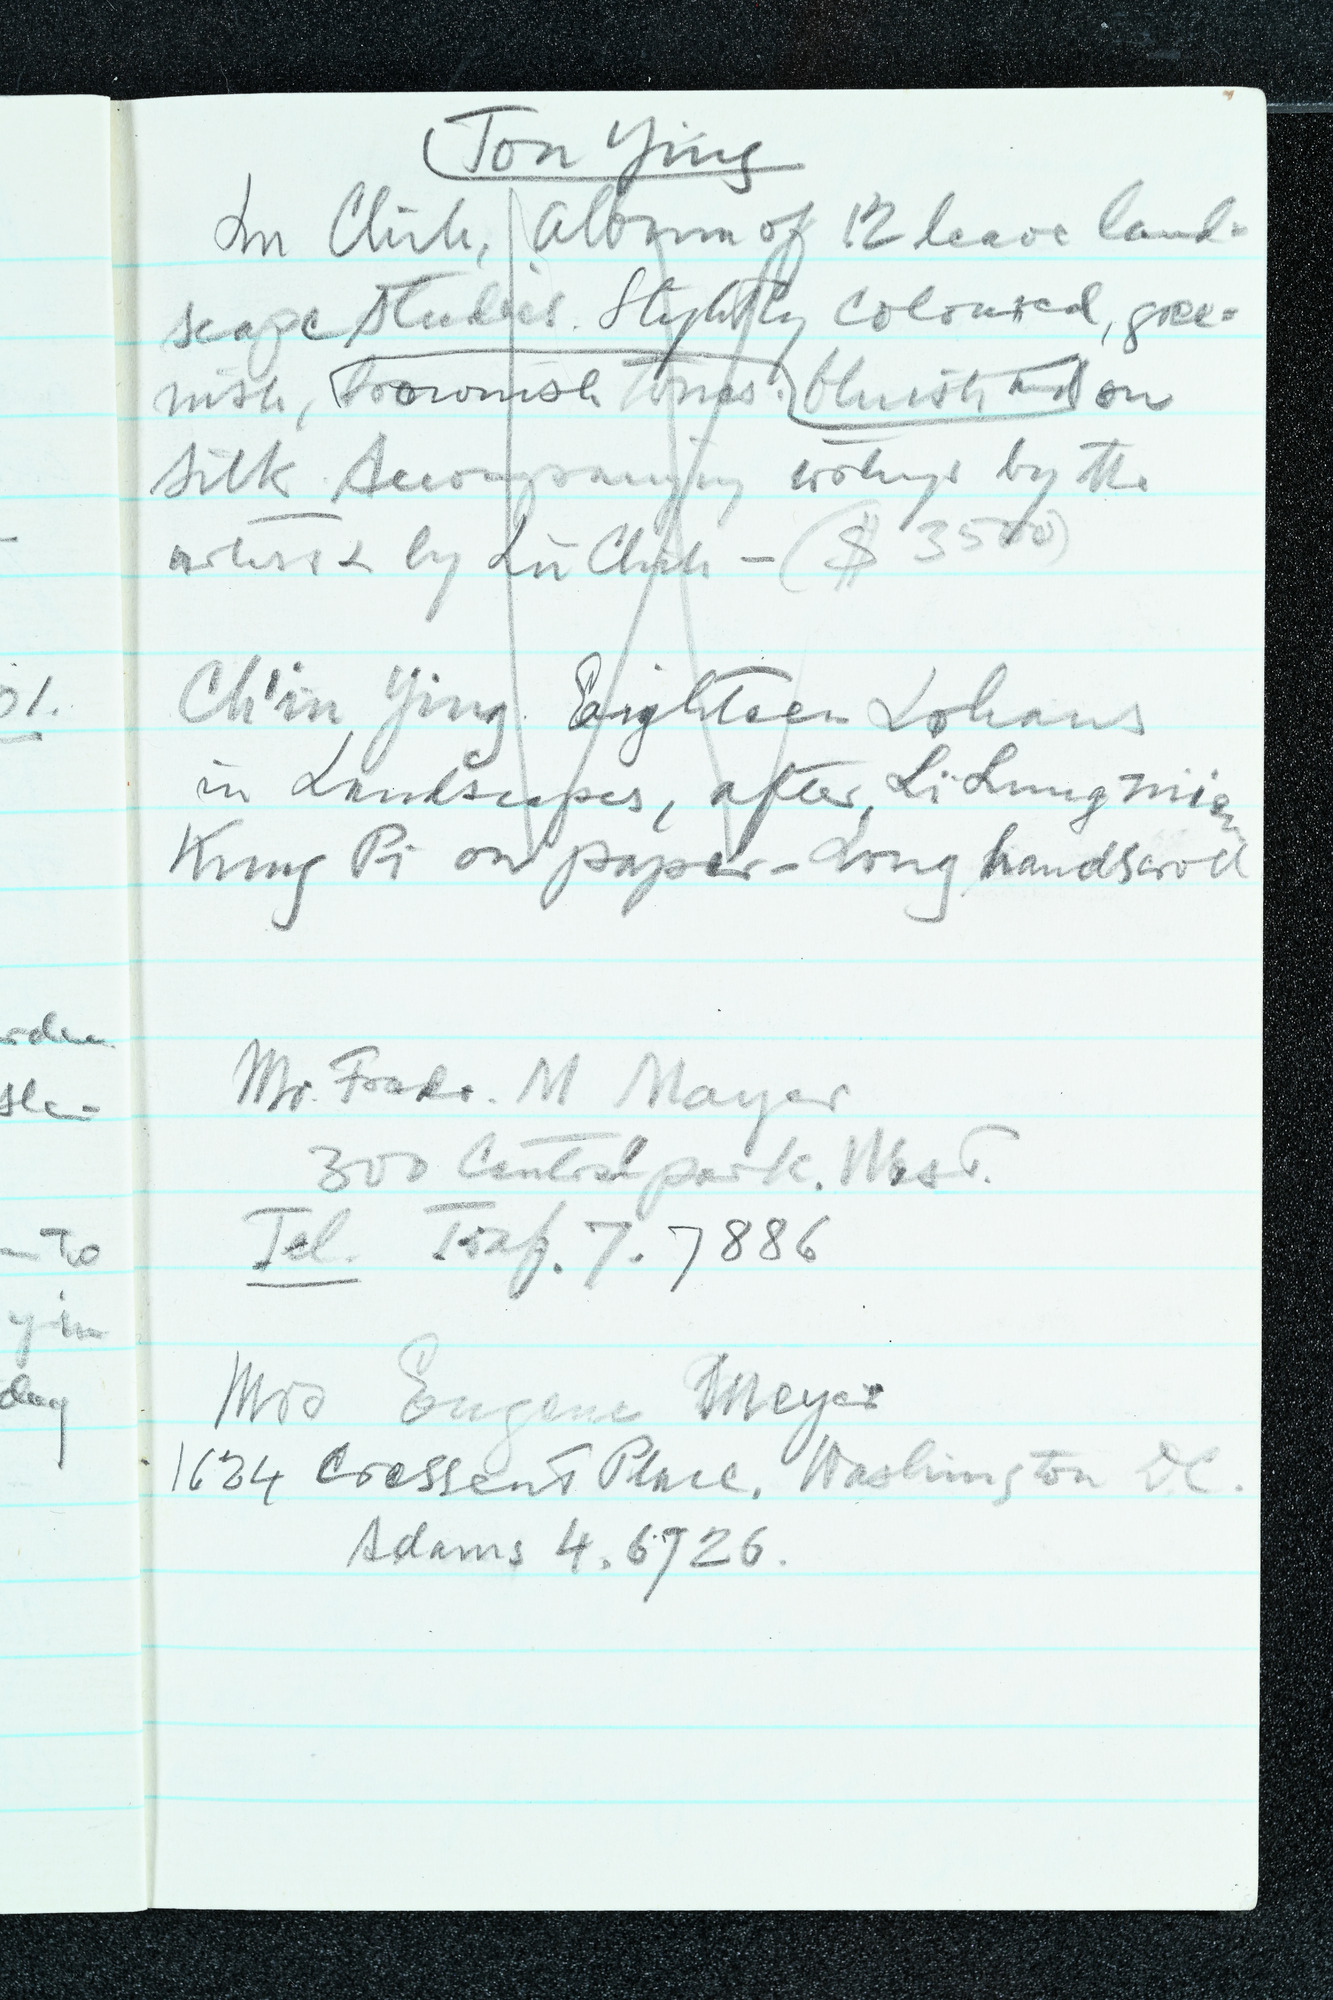 Ton Ying
Lu Chih, album of 12 leave land-
scape studies. Slightly coloured, gree-
nish, brownish tones. bluish and on
silk. Accompanying by the
artist & by Lu Chih - ($ 3500)
Ch'iu Ying. Eighteen Lohans
in Landscapes, after, Li Lung mien
Kung Pi on paper - Long handscroll
Mr. Fredr. M Mayer
300 Central park. West.
Tel. Traf. 7. 7886
Mrs Eugene Meyer
1624 Cressent Place, Washington DC.
Adams 4. 6726.
01.
rden
sle-
- To
y in
day